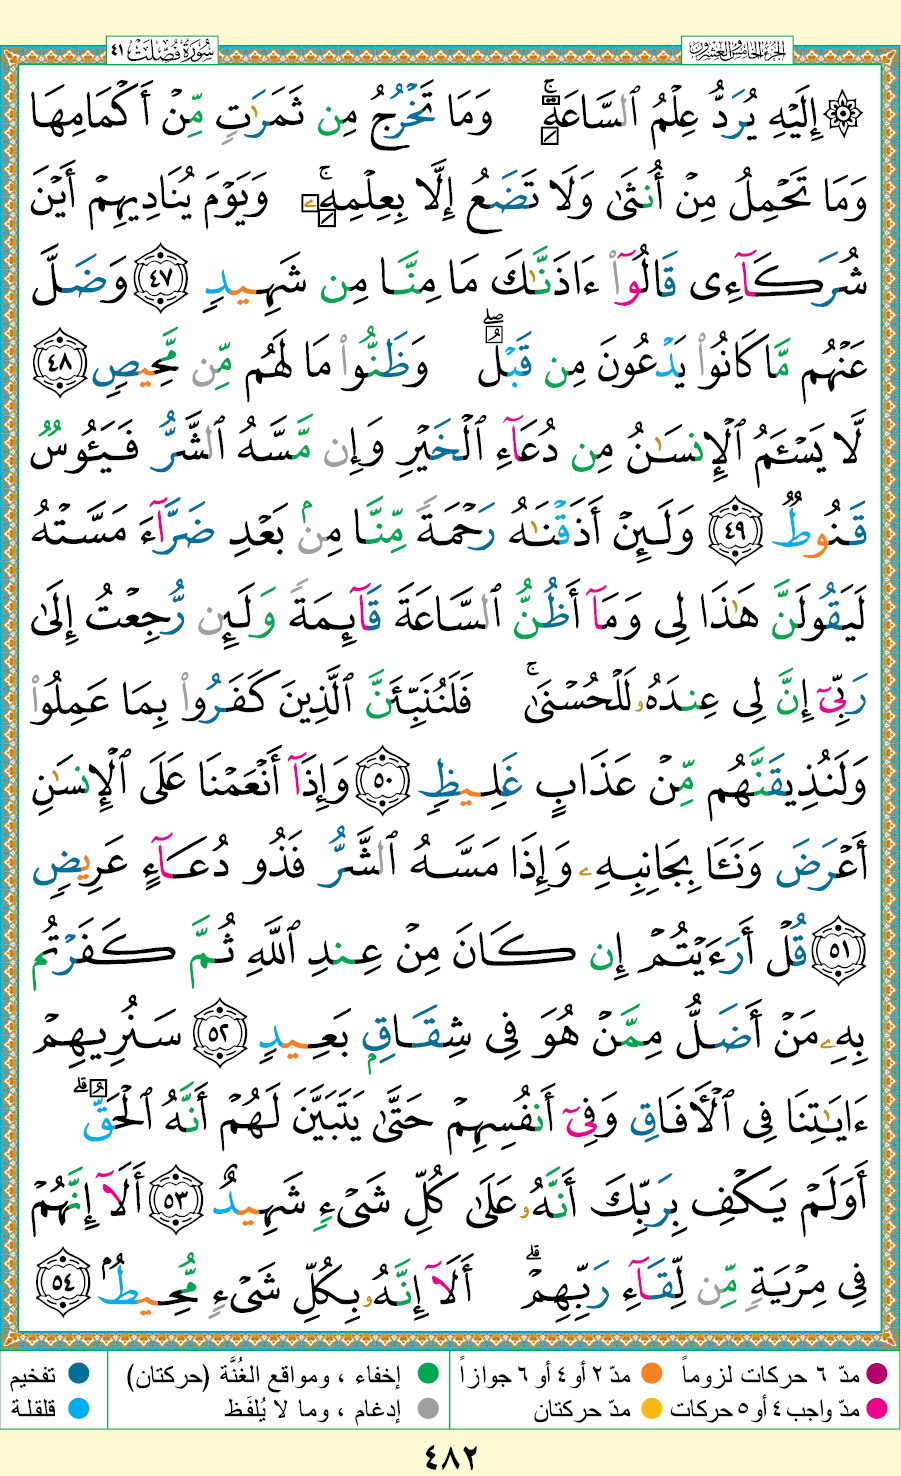 الجزء الخامس والعشرون
سورة فصلت ٤١
۞ إِلَيْهِ يُرَدُّ عِلْمُ ٱلسَّاعَةِۚ وَمَا تَخْرُجُ مِن ثَمَرَٰتٍ مِّنْ أَكْمَامِهَا
وَمَا تَحْمِلُ مِنْ أُنثَىٰ وَلَا تَضَعُ إِلَّا بِعِلْمِهِۦۚ وَيَوْمَ يُنَادِيهِمْ أَيْنَ
شُرَكَآءِى قَالُوٓا۟ ءَاذَنَّٰكَ مَا مِنَّا مِن شَهِيدٍ ٤٧ وَضَلَّ
عَنْهُم مَّا كَانُوا۟ يَدْعُونَ مِن قَبْلُۖ وَظَنُّوا۟ مَا لَهُم مِّن مَّحِيصٍ ٤٨
لَّا يَسْـَٔمُ ٱلْإِنسَـٰنُ مِن دُعَآءِ ٱلْخَيْرِ وَإِن مَّسَّهُ ٱلشَّرُّ فَيَـُٔوسٌ
قَنُوطٌ ٤٩ وَلَئِنْ أَذَقْنَـٰهُ رَحْمَةً مِّنَّا مِنۢ بَعْدِ ضَرَّآءَ مَسَّتْهُ
لَيَقُولَنَّ هَـٰذَا لِى وَمَآ أَظُنُّ ٱلسَّاعَةَ قَآئِمَةً وَلَئِن رُّجِعْتُ إِلَىٰ
رَبِّىٓ إِنَّ لِى عِندَهُۥ لَلْحُسْنَىٰۚ فَلَنُنَبِّئَنَّ ٱلَّذِينَ كَفَرُوا۟ بِمَا عَمِلُوا۟
وَلَنُذِيقَنَّهُم مِّنْ عَذَابٍ غَلِيظٍ ٥٠ وَإِذَآ أَنْعَمْنَا عَلَى ٱلْإِنسَـٰنِ
أَعْرَضَ وَنَـَٔا بِجَانِبِهِۦ وَإِذَا مَسَّهُ ٱلشَّرُّ فَذُو دُعَآءٍ عَرِيضٍ
٥١ قُلْ أَرَءَيْتُمْ إِن كَانَ مِنْ عِندِ ٱللَّهِ ثُمَّ كَفَرْتُم
بِهِۦ مَنْ أَضَلُّ مِمَّنْ هُوَ فِى شِقَاقٍۭ بَعِيدٍ ٥٢ سَنُرِيهِمْ
ءَايَـٰتِنَا فِى ٱلْـَٔافَاقِ وَفِىٓ أَنفُسِهِمْ حَتَّىٰ يَتَبَيَّنَ لَهُمْ أَنَّهُ ٱلْحَقُّۗ
أَوَلَمْ يَكْفِ بِرَبِّكَ أَنَّهُۥ عَلَىٰ كُلِّ شَىْءٍ شَهِيدٌ ٥٣ أَلَآ إِنَّهُمْ
فِى مِرْيَةٍ مِّن لِّقَآءِ رَبِّهِمْۗ أَلَآ إِنَّهُۥ بِكُلِّ شَىْءٍ مُّحِيطٌۢ ٥٤
مدّ ٦ حركات لزوماً مدّ ٢ أو ٤ أو ٦ جوازاً إخفاء ، ومواقع الغُنَّة (حركتان) تفخيم
مدّ واجب ٤ أو ٥ حركات مدّ حركتان إدغام ، وما لا يُلفَظ قلقلة
٤٨٢